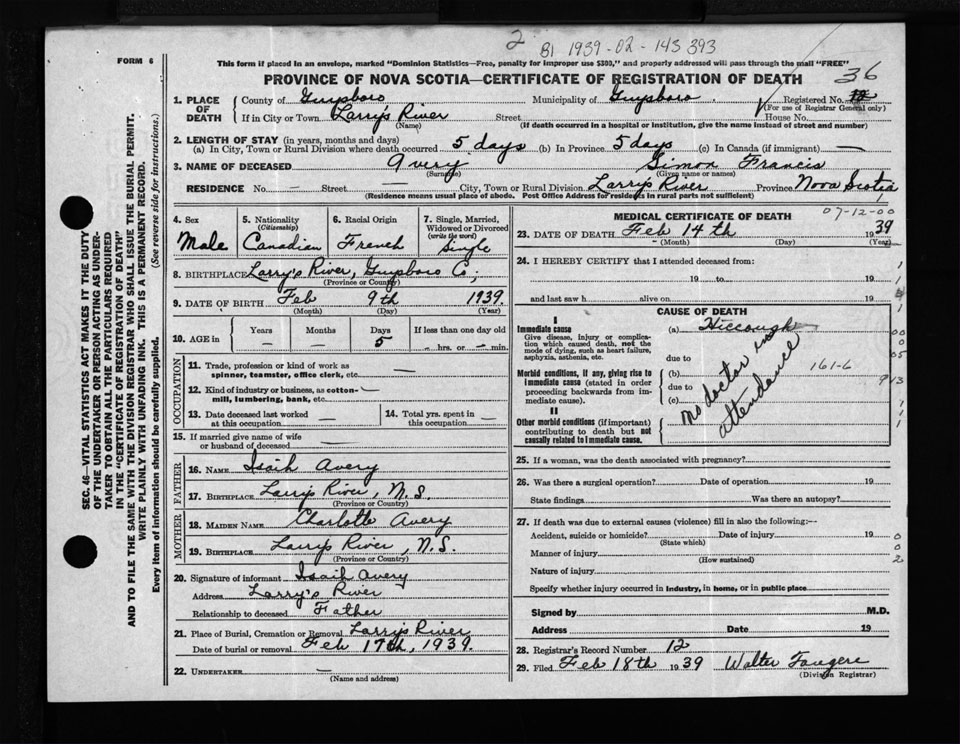 2 81 1939-02-143393
FORM 6
This form if placed in an envelope, marked "Dominion Statistics—Free, penalty for improper use $300," and properly addressed will pass through the mail "FREE"
PROVINCE OF NOVA SCOTIA—CERTIFICATE OF REGISTRATION OF DEATH
36
1. PLACE OF DEATH
County of Guysboro Municipality of Guysboro Registered No.
(For use of Registrar General only)
If in City or Town Larry's River Street House No.
(Name) (If death occurred in a hospital or institution, give the name instead of street and number)
2. LENGTH OF STAY (in years, months and days)
(a) In City, Town or Rural Division where death occurred 5 days (b) In Province 5 days (c) In Canada (if immigrant) —
3. NAME OF DECEASED Avery Simon Francis
(Surname) (Given name or names)
RESIDENCE No. — Street — City, Town or Rural Division Larry's River Province Nova Scotia
(Residence means usual place of abode. Post Office Address for residents in rural parts not sufficient)
1
SEC. 46—VITAL STATISTICS ACT MAKES IT THE DUTY
OF THE UNDERTAKER OR PERSON ACTING AS UNDER-
TAKER TO OBTAIN ALL THE PARTICULARS REQUIRED
IN THE "CERTIFICATE OF REGISTRATION OF DEATH"
AND TO FILE THE SAME WITH THE DIVISION REGISTRAR WHO SHALL ISSUE THE BURIAL PERMIT.
WRITE PLAINLY WITH UNFADING INK. THIS IS A PERMANENT RECORD.
Every item of information should be carefully supplied. (See reverse side for instructions.)
4. Sex
Male
5. Nationality
(Citizenship)
Canadian
6. Racial Origin
French
7. Single, Married,
Widowed or Divorced
(write the word)
Single
8. BIRTHPLACE Larry's River, Guysboro Co;
(Province or County)
9. DATE OF BIRTH Feb 9th 1939.
(Month) (Day) (Year)
10. AGE in
Years Months Days If less than one day old
— — 5 — hrs. or — min.
OCCUPATION
11. Trade, profession or kind of work as
spinner, teamster, office clerk, etc. —
12. Kind of industry or business, as cotton-
mill, lumbering, bank, etc. —
13. Date deceased last worked
at this occupation —
14. Total yrs. spent in
this occupation —
15. If married give name of wife
or husband of deceased —
FATHER
16. NAME Isaih Avery
17. BIRTHPLACE Larry's River, N.S.
(Province or Country)
MOTHER
18. MAIDEN NAME Charlotte Avery
19. BIRTHPLACE Larry's River, N.S.
(Province or Country)
20. Signature of informant Isaih Avery
Address Larry's River
Relationship to deceased Father
21. Place of Burial, Cremation or Removal Larry's River
Date of burial or removal Feb 17th, 1939.
22. UNDERTAKER —
(Name and address)
MEDICAL CERTIFICATE OF DEATH 07-12-00
23. DATE OF DEATH Feb 14th 1939
(Month) (Day) (Year)
24. I HEREBY CERTIFY that I attended deceased from:
19 to 19
and last saw h alive on 19
CAUSE OF DEATH
I
Immediate cause
Give disease, injury or complica-
tion which caused death, not the
mode of dying, such as heart failure,
asphyxia, asthenia, etc.
(a) Hiccough
due to
Morbid conditions, if any, giving rise to
immediate cause (stated in order
proceeding backwards from im-
mediate cause).
(b)
due to
(c)
161-6
no doctor in
attendance
II
Other morbid conditions (if important)
contributing to death but not
causally related to immediate cause.
25. If a woman, was the death associated with pregnancy?
26. Was there a surgical operation? Date of operation 19
State findings Was there an autopsy?
27. If death was due to external causes (violence) fill in also the following:—
Accident, suicide or homicide? Date of injury 19
(State which)
Manner of injury
(How sustained)
Nature of injury
Specify whether injury occurred in industry, in home, or in public place
Signed by M.D.
Address Date 19
28. Registrar's Record Number 12
29. Filed Feb 18th 1939 Walter Fougere
(Division Registrar)
1
1
4
1
00
00
05
9 13
1
1
0
0
2